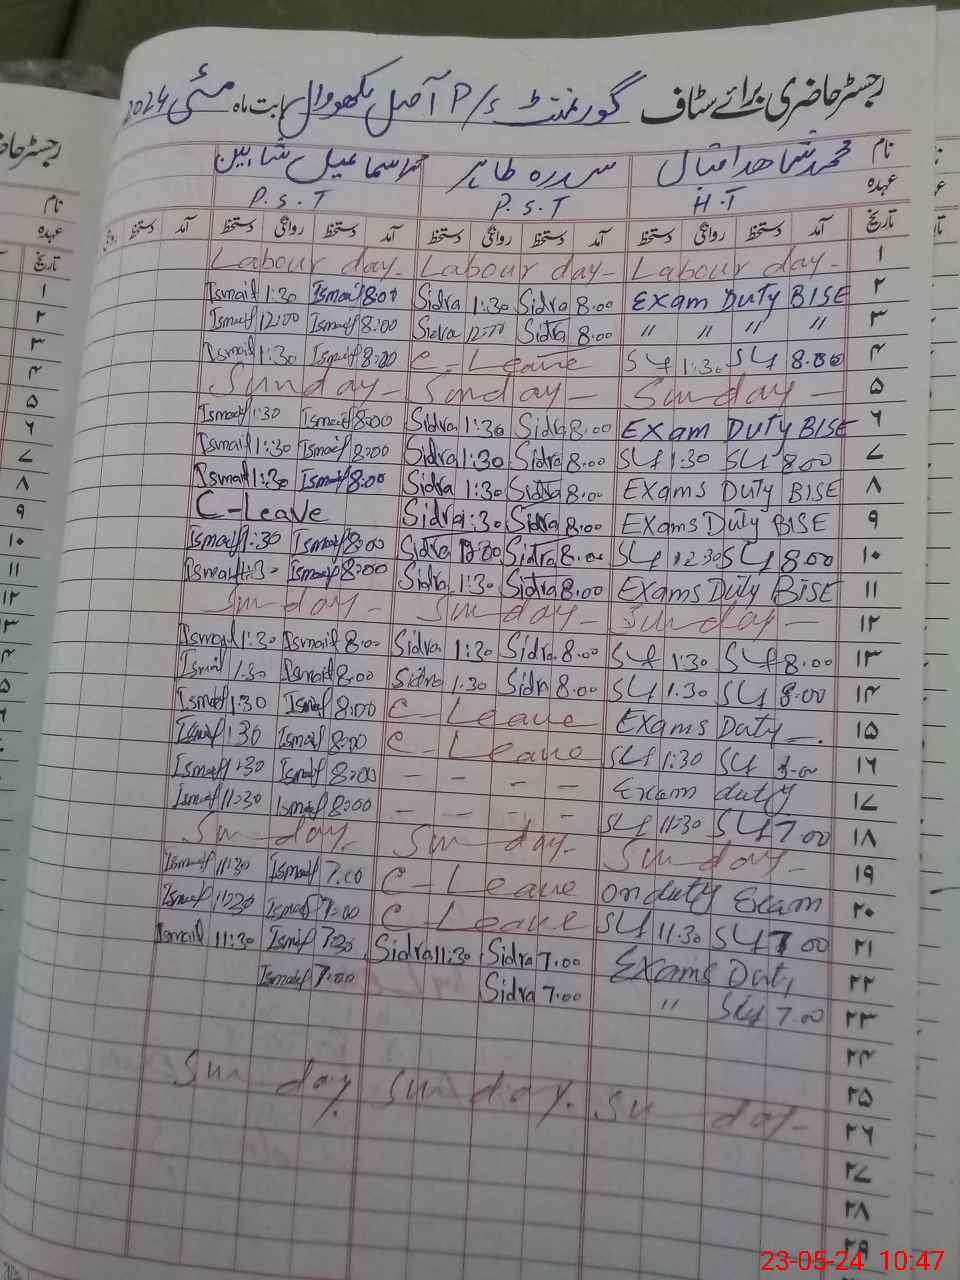 رجسٹر حاضری برائے سٹاف گورنمنٹ P/S آصل لکھووال بابت ماہ مئی 2024
نام محمد شاهد اقبال سدرہ طاہر اسماعیل شاہین
عہدہ H.T P.S.T P.S.T
تاریخ آمد دستخط روانگی دستخط آمد دستخط روانگی دستخط آمد دستخط روانگی دستخط آمد دستخط
۱ Labour day- Labour day- Labour day-
۲ Exam Duty BISE Sidra 1:30 Sidra 8.00 Ismail 1:30 Ismail 8:00
۳ " " " " Sidra 12:00 Sidra 8.00 Ismail 12:00 Ismail 8:00
۴ SY 1:30 SY 8.00 C-Leave Ismail 1:30 Ismail 8:00
۵ Sunday- Sunday- Sunday-
۶ Exam Duty BISE Sidra 1:30 Sidra 8.00 Ismail 1:30 Ismail 8:00
۷ SY 1:30 SY 8.00 Sidra 1:30 Sidra 8.00 Ismail 1:30 Ismail 8:00
۸ Exams Duty BISE Sidra 1:30 Sidra 8.00 Ismail 1:30 Ismail 8:00
۹ Exams Duty BISE Sidra 1:30 Sidra 8.00 C-Leave
۱۰ SY 12:30 SY 8.00 Sidra 12:00 Sidra 8.00 Ismail 1:30 Ismail 8:00
۱۱ Exams Duty BISE Sidra 1:30 Sidra 8.00 Ismail 1:30 Ismail 8:00
۱۲ Sunday- Sunday- Sunday-
۱۳ SY 1:30 SY 8.00 Sidra 1:30 Sidra 8.00 Ismail 1:30 Ismail 8:00
۱۴ SY 1:30 SY 8.00 Sidra 1:30 Sidra 8.00 Ismail 1:30 Ismail 8:00
۱۵ Exams Duty- C-Leave Ismail 1:30 Ismail 8:00
۱۶ SY 1:30 SY 8.00 C-Leave Ismail 1:30 Ismail 8:00
۱۷ Exam duty - - - - Ismail 1:30 Ismail 8:00
۱۸ SY 11:30 SY 7.00 - - - - Ismail 11:30 Ismail 8:00
۱۹ Sunday- Sunday- Sunday-
۲۰ on duty Exam C-Leave Ismail 11:30 Ismail 7.00
۲۱ SY 11:30 SY 7.00 C-Leave Ismail 11:30 Ismail 7:00
۲۲ Exams Duty Sidra 11:30 Sidra 7.00 Ismail 11:30 Ismail 7:30
۲۳ " SY 7.00 Sidra 7.00 Ismail 7:00
۲۴
۲۵
۲۶ Sunday- Sunday. Sunday.
۲۷
۲۸
۲۹
23-05-24 10:47